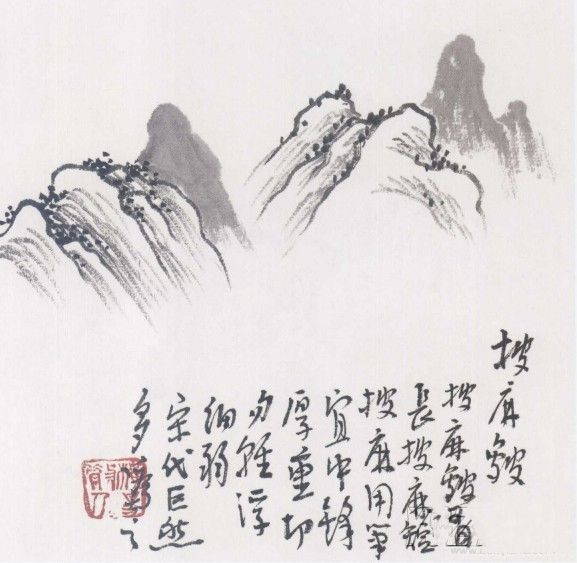 披麻皴
披麻皴有
長披麻短
披麻用笔
宜中锋
厚重切
勿轻浮
细弱
宋代巨然
多之